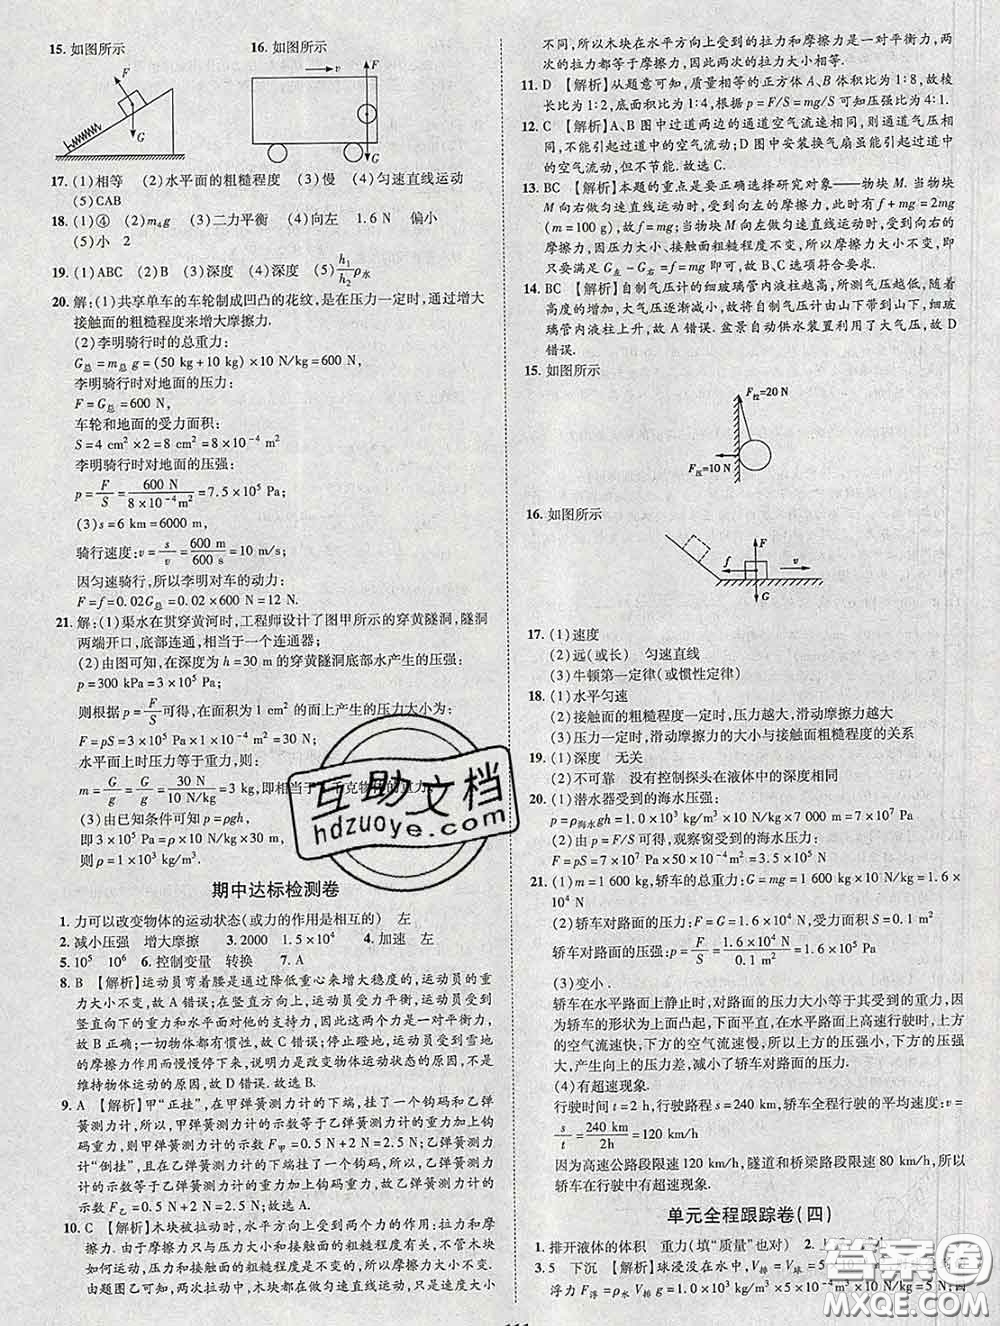 15. 如图所示 16. 如图所示
F
G
v
F
G
17. (1)相等 (2)水平面的粗糙程度 (3)慢 (4)匀速直线运动
(5)CAB
18. (1)④ (2)m₄g (3)二力平衡 (4)向左 1.6 N 偏小
(5)小 2
19. (1)ABC (2)B (3)深度 (4)深度 (5)h₁/h₂ρ水
20. 解:(1)共享单车的车轮制成凹凸的花纹,是在压力一定时,通过增大
接触面的粗糙程度来增大摩擦力.
(2)李明骑行时的总重力:
G总=m总g=(50 kg+10 kg)×10 N/kg=600 N,
李明骑行时对地面的压力:
F=G总=600 N,
车轮和地面的受力面积:
S=4 cm²×2=8 cm²=8×10⁻⁴ m²,
李明骑行时对地面的压强:
p=F/S=600 N/8×10⁻⁴m²=7.5×10⁵ Pa;
(3)s=6 km=6000 m,
骑行速度:v=s/v=600 m/600 s=10 m/s,
因匀速骑行,所以李明对车的动力:
F=f=0.02G总=0.02×600N=12 N.
21. 解:(1)渠水在贯穿黄河时,工程师设计了图甲所示的穿黄隧洞,隧洞
两端开口,底部连通,相当于一个连通器;
(2)由图可知,在深度为h=30 m的穿黄隧洞底部水产生的压强:
p=300 kPa=3×10⁵ Pa,
则根据p=F/S可得,在100 cm²的面上产生的压力大小为:
F=pS=3×10⁵ Pa×100×10⁻⁴ m²=3×10³ N;
水平面上时压力等于重力,则:
m=G/g=G/g=30 N/10 N/kg=3 kg,即相当于
(3)由已知条件可知p=ρgh,
即3×10⁵ Pa=ρ×10 N/kg×30 m,
则ρ=1×10³ kg/m³.
期中达标检测卷
1. 力可以改变物体的运动状态(或力的作用是相互的) 左
2. 减小压强 增大摩擦 3. 2000 1.5×10⁴ 4. 加速 左
5. 10⁵ 10⁶ 6. 控制变量 转换 7. A
8. B 【解析】运动员弯着腰是通过降低重心来增大稳度的,运动员的重
力大小不变,故A错误;在竖直方向上,运动员受力平衡,运动员受到
竖直向下的重力和水平面对他的支持力,因此这两个力是平衡力,
故B正确;一切物体都有惯性,故C错误;停止蹬地,运动员受到雪地
的摩擦力作用而慢慢停下来,说明力是改变物体运动的原因,不是
维持物体运动的原因,故D错误.故选B.
9. A 【解析】甲“正挂”,在甲弹簧测力计的下端,挂了一个钩码和乙弹
簧测力计,所以,甲弹簧测力计的示数等于乙弹簧测力计的重力加上钩
码重力,则甲弹簧测力计的示数F甲=0.5 N+2 N=2.5 N;乙弹簧测力
计“倒挂”,且在乙弹簧测力计的下端挂了一个钩码,所以,乙弹簧测力计
的示数等于乙弹簧测力计的重力加上钩码重力,则乙弹簧测力计的
示数F乙=0.5 N+2 N=2.5 N;故选A.
10. C 【解析】木块被拉动时,水平方向上受到两个力的作用:拉力和摩
擦力.由于摩擦力只与压力大小和接触面的粗糙程度有关,与木块
如何运动、运动快慢、拉力大小等因素无关,故两次摩擦力大小相等;
故由图乙可知,两次拉动中,木块都在做匀速直线运动,摩擦力大小
不同,所以木块在水平方向上受到的拉力和摩擦力是一对平衡力,两
次的拉力都等于摩擦力,因此两次的拉力大小相等.
11. D 【解析】从题意可知,质量相等的正方体A、B体积比为1∶8,故棱
长比为1∶2,底面积比为1∶4,根据p=F/S=mg/S可知压强为4∶1.
12. C 【解析】A、B图中过道两边的通道空气流速相同,则通道气压相
同,不能引起过道中的空气流动;D图中安装换气扇虽能引起过道中
的空气流动,但不节能.故选C.
13. BC 【解析】本题的重点是要正确选择研究对象——物块M.当物块
M向右做匀速直线运动时,受到向左的摩擦力,此时有f+mg=2mg
(m=100 g),故当物块M向左做匀速直线运动时,受到向右的
摩擦力,因压力大小、接触面粗糙程度不变,所以摩擦力大小不变,即
只要满足G左−G右=f=mg即可,故B、C选项符合要求.
14. BC 【解析】自制气压计的细玻璃管内液柱越高,所测气压越低.随着
高度的增加,大气压逐渐减小,故将自制气压计由山下带到山下,细玻
璃管内液柱上升,故A错误.盆景自动供水装置利用了大气压,故D
错误.
15. 如图所示
F拉=20 N
F压=10 N
16. 如图所示
F
f
v
G
17. (1)速度
(2)远(或长) 匀速直线
(3)牛顿第一定律(或惯性定律)
18. (1)水平匀速
(2)接触面的粗糙程度一定时,压力越大,滑动摩擦力越大
(3)压力一定时,滑动摩擦力的大小与接触面粗糙程度的关系
19. (1)深度 无关
(2)不可靠 没有控制探头在液体中的深度相同
20. (1)潜水器受到的海水压强:
p=ρ海水gh=1.0×10³ kg/m³×10 N/kg×7 000 m=7×10⁷ Pa
(2)由p=F/S可得,观察窗受到的海水压力:
F=pS=7×10⁷ Pa×50×10⁻³ m²=3.5×10⁶ N
21. (1)m=1 600 kg,轿车的重力:G=mg=1 600 kg×10 N/kg=1.6
×10⁴ N.
(2)轿车对路面的压力:F=G=1.6×10⁴ N,受力面积S=0.1 m²
轿车对路面的压强:p=F/S=1.6×10⁴ N/0.1 m²=1.6×10⁵ Pa
(3)变小.
轿车在水平路面上静止时,对路面的压力大小等于其受到的重力,因
为轿车的形状为上面凸起,下面平直,在水平路面上高速行驶时,上方
的空气流速快,下方的空气流速慢,所以上方的压强小,下方的压强
大,产生向上的压力差,减小了轿车对路面的压力.
(4)有超速现象.
行驶时间t=2 h,行驶路程s=240 km,轿车全程行驶的平均速度:v=
s/t=240 km/2h=120 km/h
因为高速公路段限速120 km/h,隧道和桥梁路段限速80 km/h,所以
轿车在行驶中有超速现象.
单元全程跟踪卷(四)
1. 排开液体的体积 重力(填“质量”也对) 2. 上
3. 5 下沉 【解析】球浸没在水中,V排=V球=5
浮力F浮=ρ水V排g=1.0×10³
互助文档
hdzuoye.com
答案圈
MXQE.COM